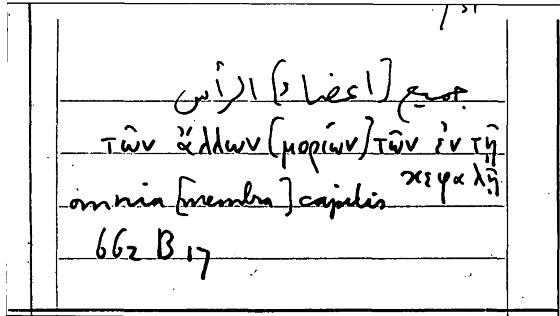 جميع [اعضاء] الرأس
τῶν ἄλλων (μορίων) τῶν ἐν τῇ
κεφαλῇ
omnia [membra] capitis
662 B 17